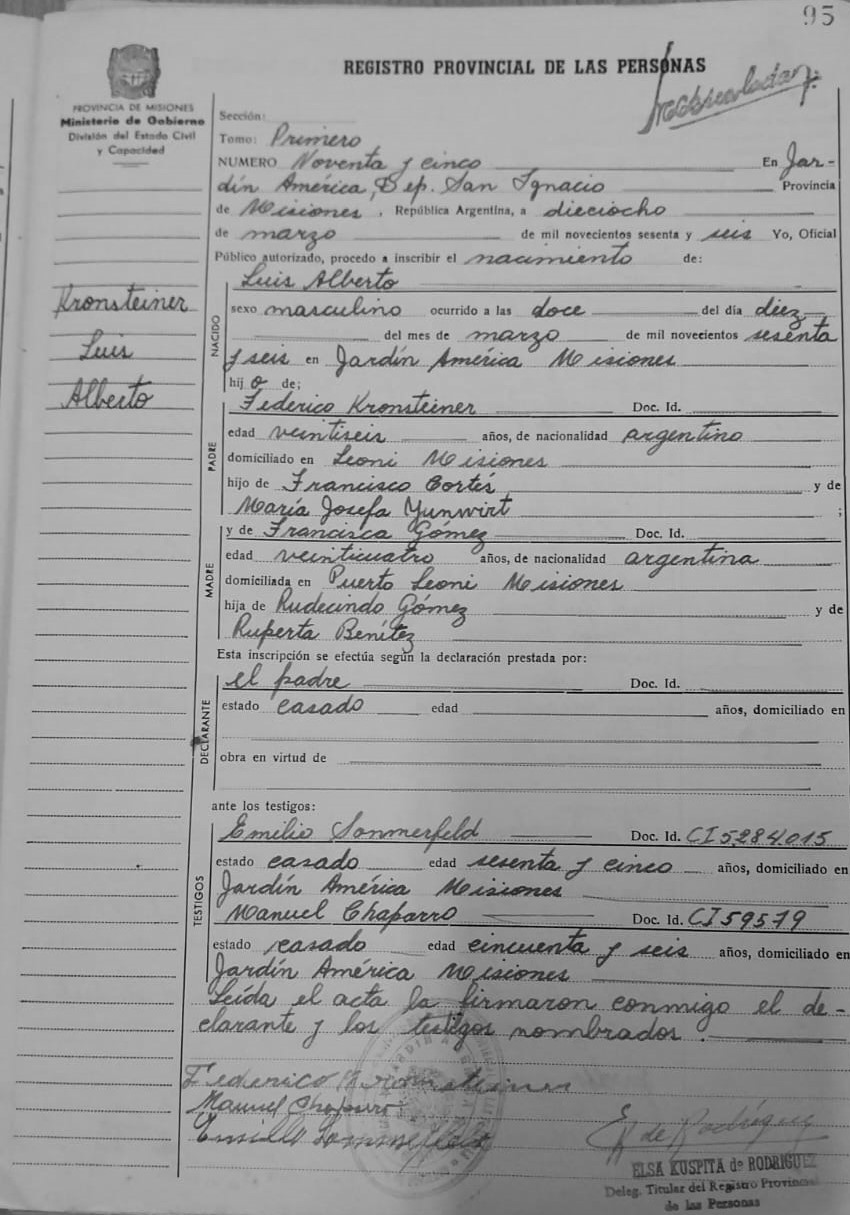 95
REGISTRO PROVINCIAL DE LAS PERSONAS
PROVINCIA DE MISIONES
Ministerio de Gobierno
División del Estado Civil
y Capacidad
Sección:
Tomo: Primero
NUMERO Noventa y cinco En Jar-
dín América, Dep. San Ignacio Provincia
de Misiones, República Argentina, a dieciocho
de marzo de mil novecientos sesenta y seis Yo, Oficial
Público autorizado, procedo a inscribir el nacimiento de:
Kronsteiner
Luis
Alberto
NACIDO
Luis Alberto
sexo masculino ocurrido a las doce del día diez
del mes de marzo de mil novecientos sesenta
y seis en Jardín América Misiones
hijo de;
PADRE
Federico Kronsteiner Doc. Id.
edad veintiseis años, de nacionalidad argentino
domiciliado en Leoni Misiones
hijo de Francisco Cortés y de
María Josefa Yunwirt ;
MADRE
y de Francisca Gómez Doc. Id.
edad veinticuatro años, de nacionalidad argentina
domiciliada en Puerto Leoni Misiones
hija de Rudecindo Gómez y de
Ruperta Benítez
Esta inscripción se efectúa según la declaración prestada por:
DECLARANTE
el padre Doc. Id.
estado casado edad años, domiciliado en
obra en virtud de
ante los testigos:
TESTIGOS
Emilio Sommerfeld Doc. Id. CI5284015
estado casado edad sesenta y cinco años, domiciliado en
Jardín América Misiones
Manuel Chaparro Doc. Id. CI59579
estado casado edad cincuenta y seis años, domiciliado en
Jardín América Misiones
Leída el acta la firmaron conmigo el de-
clarante y los testigos nombrados.
Federico Kronsteiner
Manuel Chaparro
Emilio Sommerfeld
E K de Rodríguez
ELSA KUSPITA de RODRIGUEZ
Deleg. Titular del Registro Provincial
de las Personas